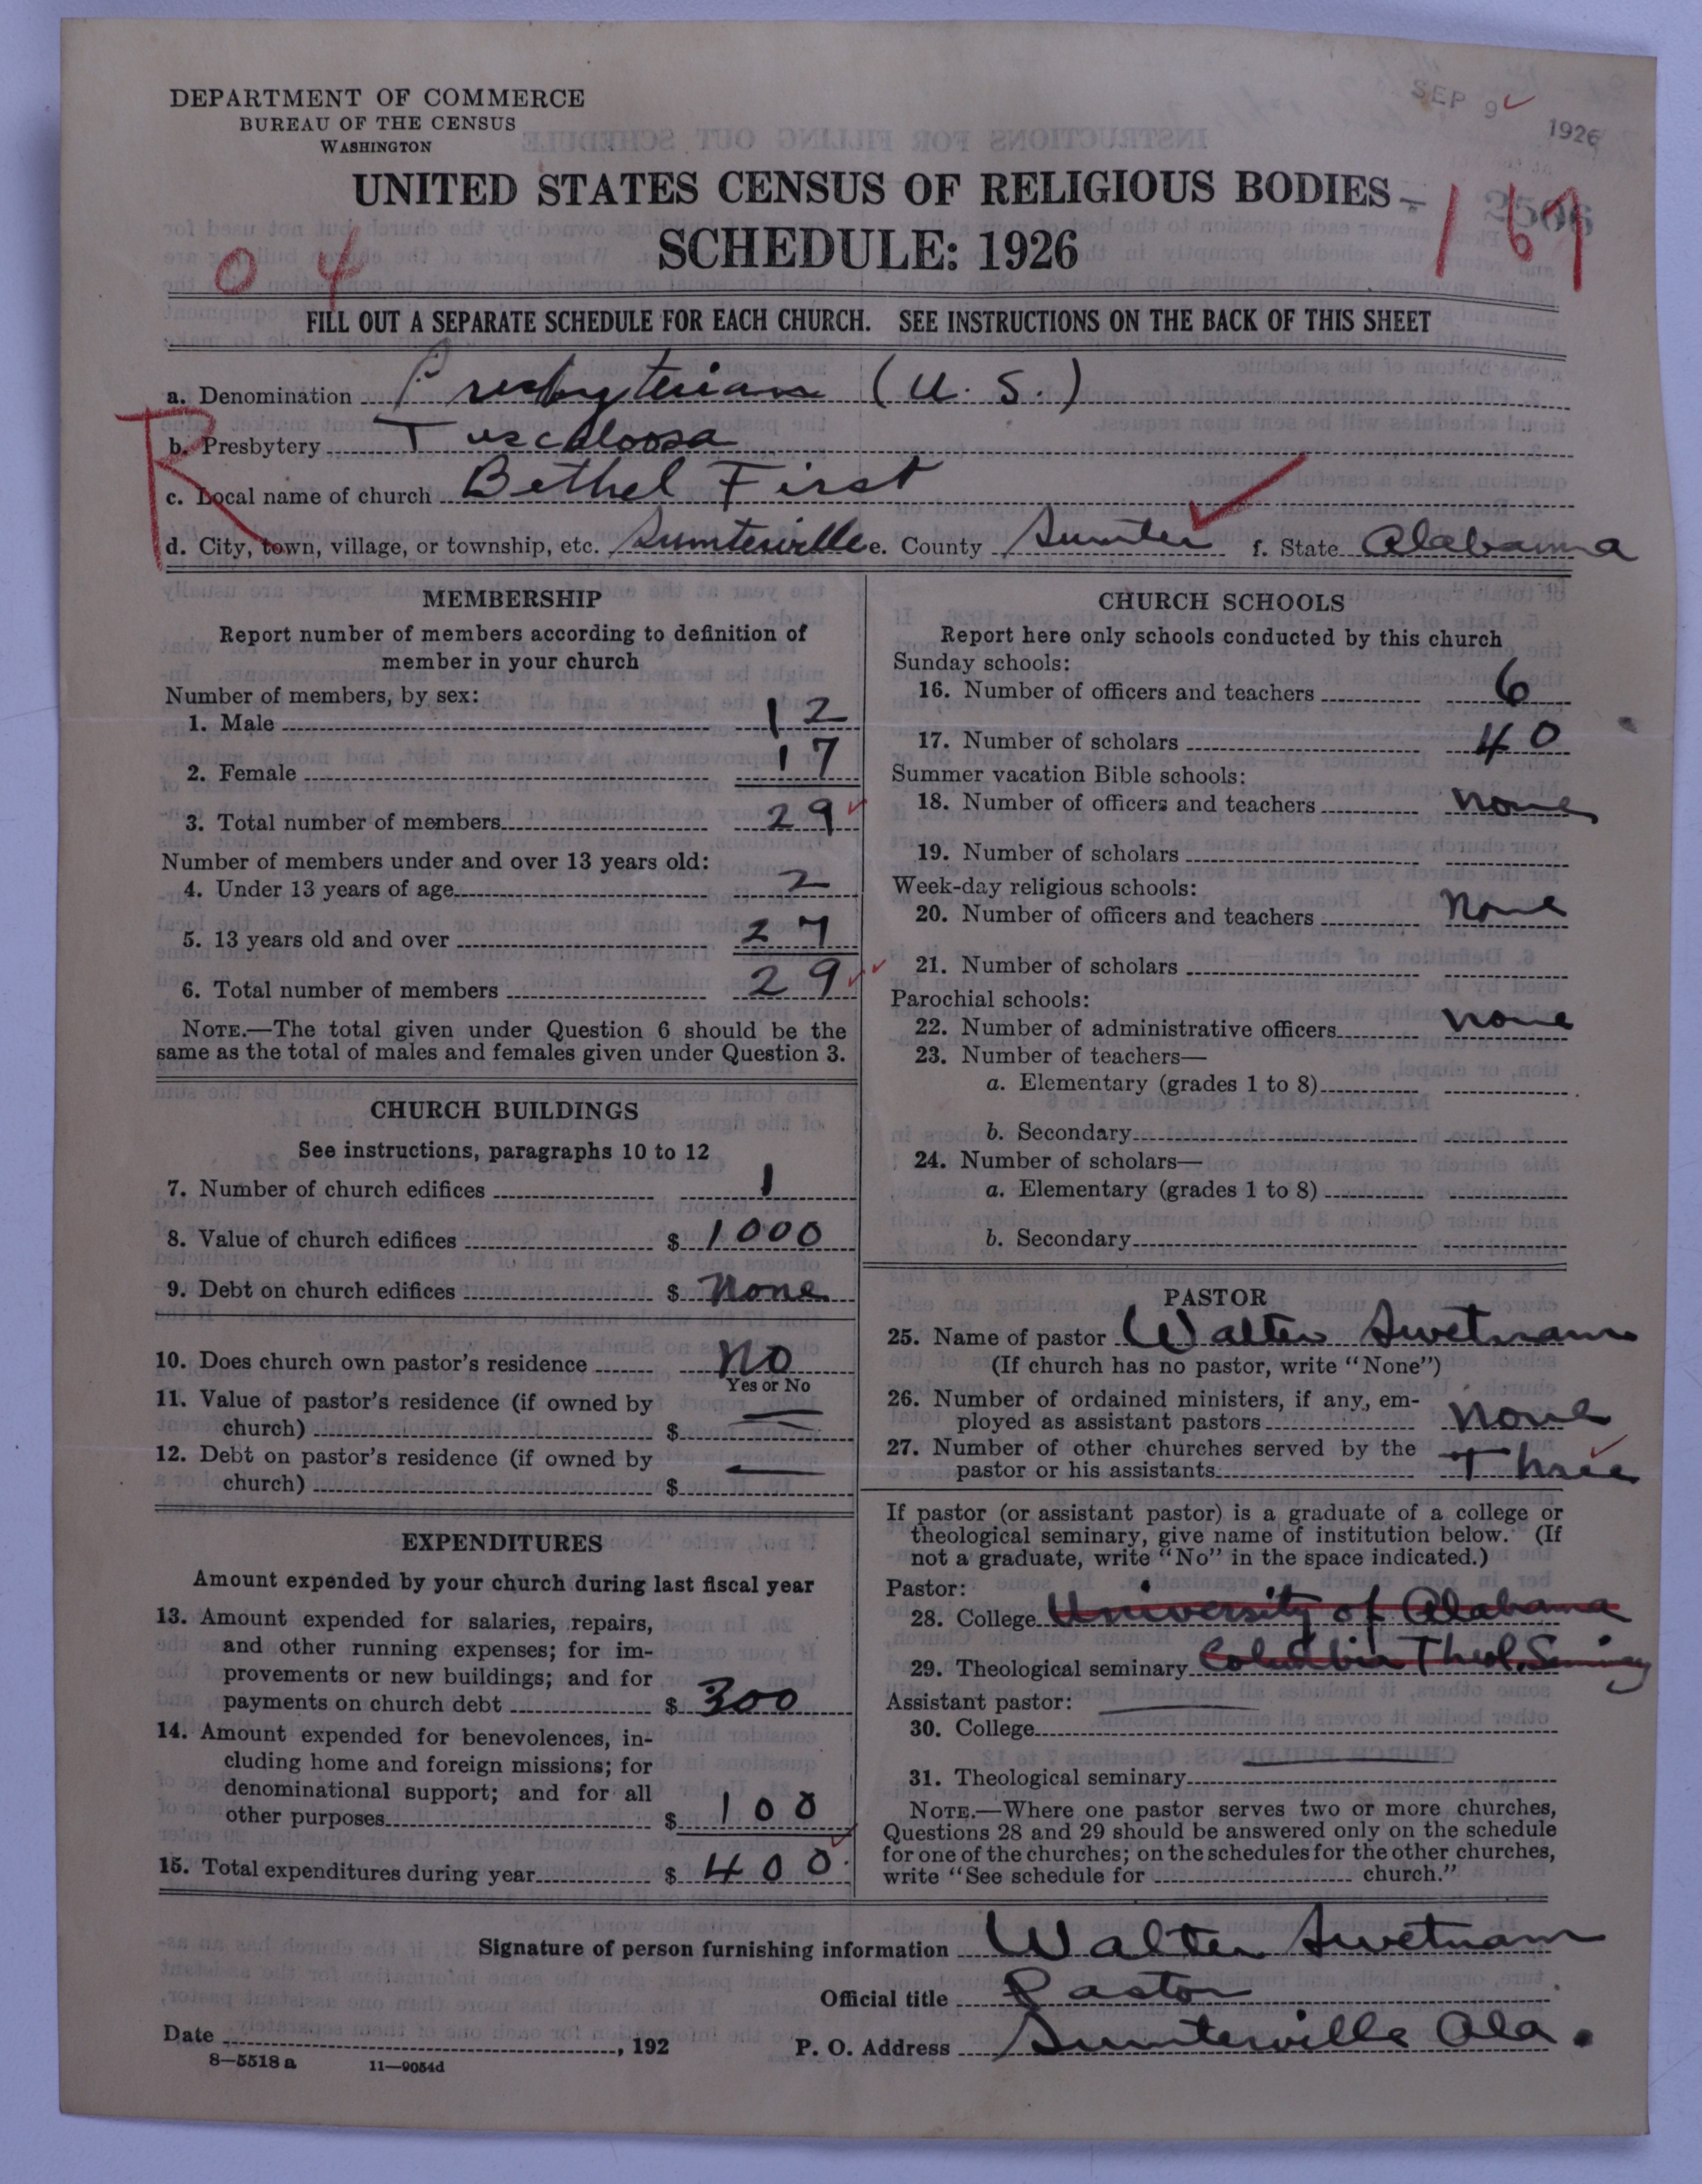 DEPARTMENT OF COMMERCE
BUREAU OF THE CENSUS
WASHINGTON
SEP 9 1926
UNITED STATES CENSUS OF RELIGIOUS BODIES
SCHEDULE: 1926
04
167
2506
FILL OUT A SEPARATE SCHEDULE FOR EACH CHURCH. SEE INSTRUCTIONS ON THE BACK OF THIS SHEET
a. Denomination Presbyterian (U. S.)
b. Presbytery Tuscaloosa
c. Local name of church Bethel First
d. City, town, village, or township, etc. Sumterville e. County Sumter f. State Alabama
R
MEMBERSHIP
Report number of members according to definition of
member in your church
Number of members, by sex:
1. Male 12
2. Female 17
3. Total number of members 29
Number of members under and over 13 years old:
4. Under 13 years of age 2
5. 13 years old and over 27
6. Total number of members 29
NOTE.—The total given under Question 6 should be the
same as the total of males and females given under Question 3.
CHURCH BUILDINGS
See instructions, paragraphs 10 to 12
7. Number of church edifices 1
8. Value of church edifices $ 1000
9. Debt on church edifices $ None
10. Does church own pastor's residence No
Yes or No
11. Value of pastor's residence (if owned by
church) $
12. Debt on pastor's residence (if owned by
church) $
EXPENDITURES
Amount expended by your church during last fiscal year
13. Amount expended for salaries, repairs,
and other running expenses; for im-
provements or new buildings; and for
payments on church debt $ 300
14. Amount expended for benevolences, in-
cluding home and foreign missions; for
denominational support; and for all
other purposes $ 100
15. Total expenditures during year $ 400
CHURCH SCHOOLS
Report here only schools conducted by this church
Sunday schools:
16. Number of officers and teachers 6
17. Number of scholars 40
Summer vacation Bible schools:
18. Number of officers and teachers None
19. Number of scholars
Week-day religious schools:
20. Number of officers and teachers None
21. Number of scholars
Parochial schools:
22. Number of administrative officers None
23. Number of teachers—
a. Elementary (grades 1 to 8)
b. Secondary
24. Number of scholars—
a. Elementary (grades 1 to 8)
b. Secondary
PASTOR
25. Name of pastor Walter Swetnam
(If church has no pastor, write "None")
26. Number of ordained ministers, if any, em-
ployed as assistant pastors None
27. Number of other churches served by the
pastor or his assistants Three
If pastor (or assistant pastor) is a graduate of a college or
theological seminary, give name of institution below. (If
not a graduate, write "No" in the space indicated.)
Pastor:
28. College University of Alabama
29. Theological seminary Columbia Theol. Seminary
Assistant pastor:
30. College
31. Theological seminary
NOTE.—Where one pastor serves two or more churches,
Questions 28 and 29 should be answered only on the schedule
for one of the churches; on the schedules for the other churches,
write "See schedule for church."
Signature of person furnishing information Walter Swetnam
Official title Pastor
Date , 192 P. O. Address Sumterville Ala.
8—5518 a 11—9054d